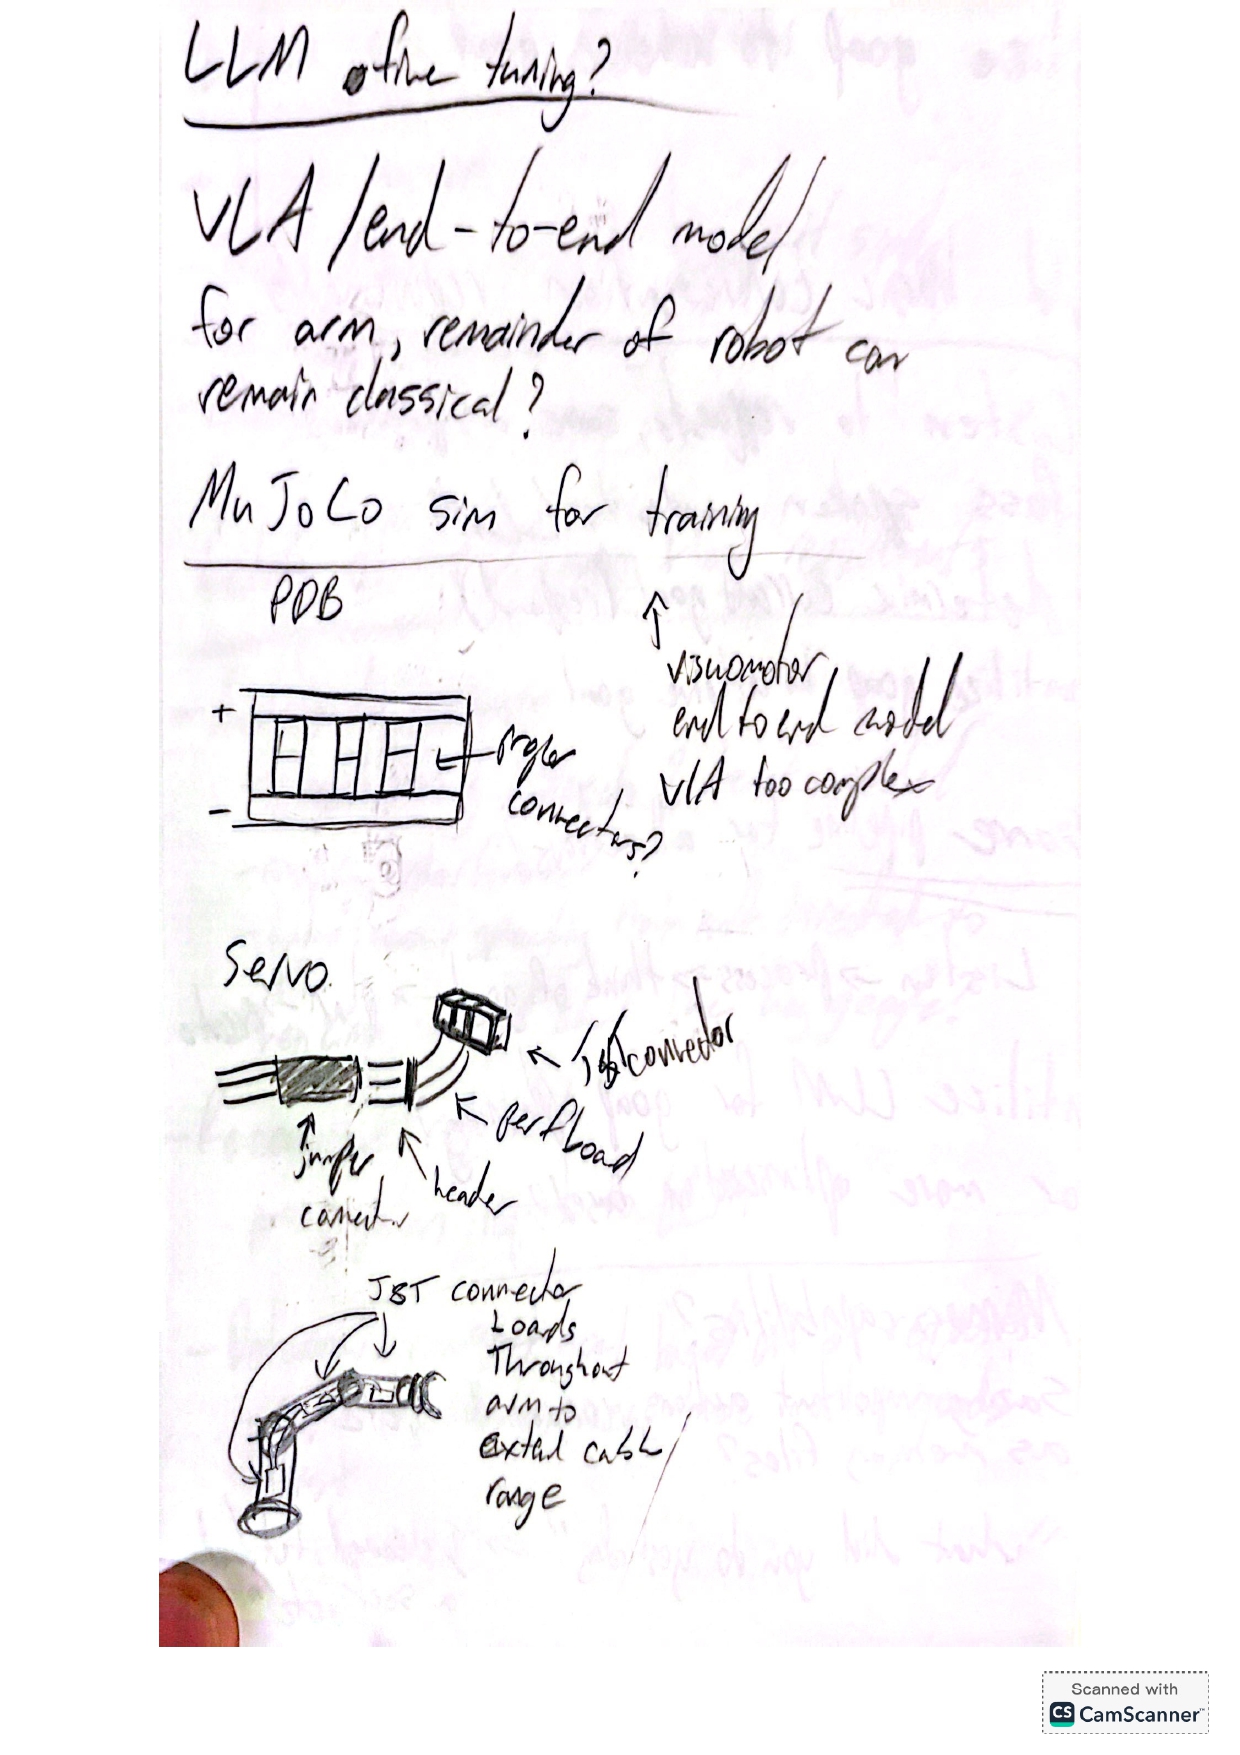 LLM fine tuning?
VLA / end-to-end model
for arm, remainder of robot can
remain classical?
MuJoCo sim for training
PDB
↑
visuomotor
end to end model
VLA too complex
+
-
connectors?
Servo
JST connector
perfboard
header
jumper
connector
JST connector
Loads
Throughout
arm to
extend cable
range
Scanned with
CS CamScanner